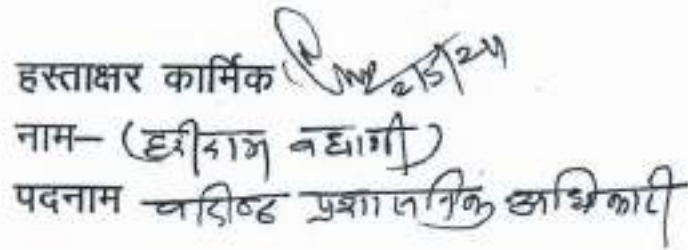 हस्ताक्षर कार्मिक 2/5/24
नाम– (हरीराम
पदनाम वरिष्ठ प्रशासनिक अधिकारी